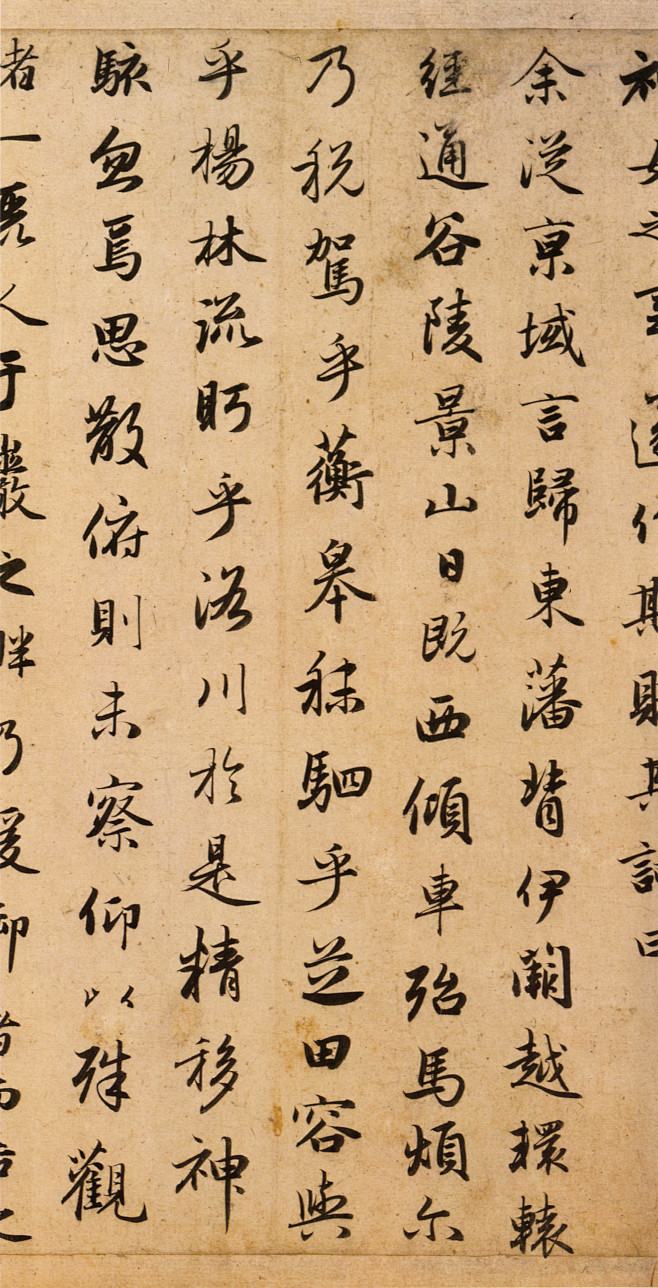 神女之事遂作斯賦其詞曰
余從京域言歸東藩背伊闕越轘轅
經通谷陵景山日既西傾車殆馬煩尔
乃税駕乎蘅皋秣駟乎芝田容與
乎楊林流眄乎洛川於是精移神
駭忽焉思散俯則未察仰以殊觀
覩一麗人于巖之畔乃援御者而告之